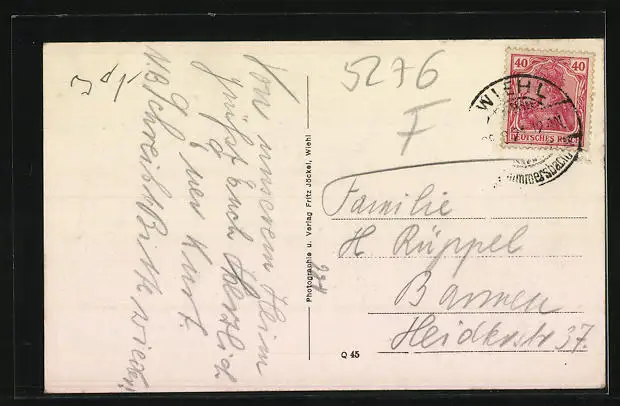 Von unserem Heim
grüßt Euch Herzlich
Euer Kurt.
N.B. Schreibt Bitte wieder!
Photographie u. Verlag Fritz Jöckel, Wiehl
5276
F
40 40
DEUTSCHES REICH
WIEHL
Gummersbach
Familie
H Rüppel
Barmen
Heidterstr 37.
Q 45